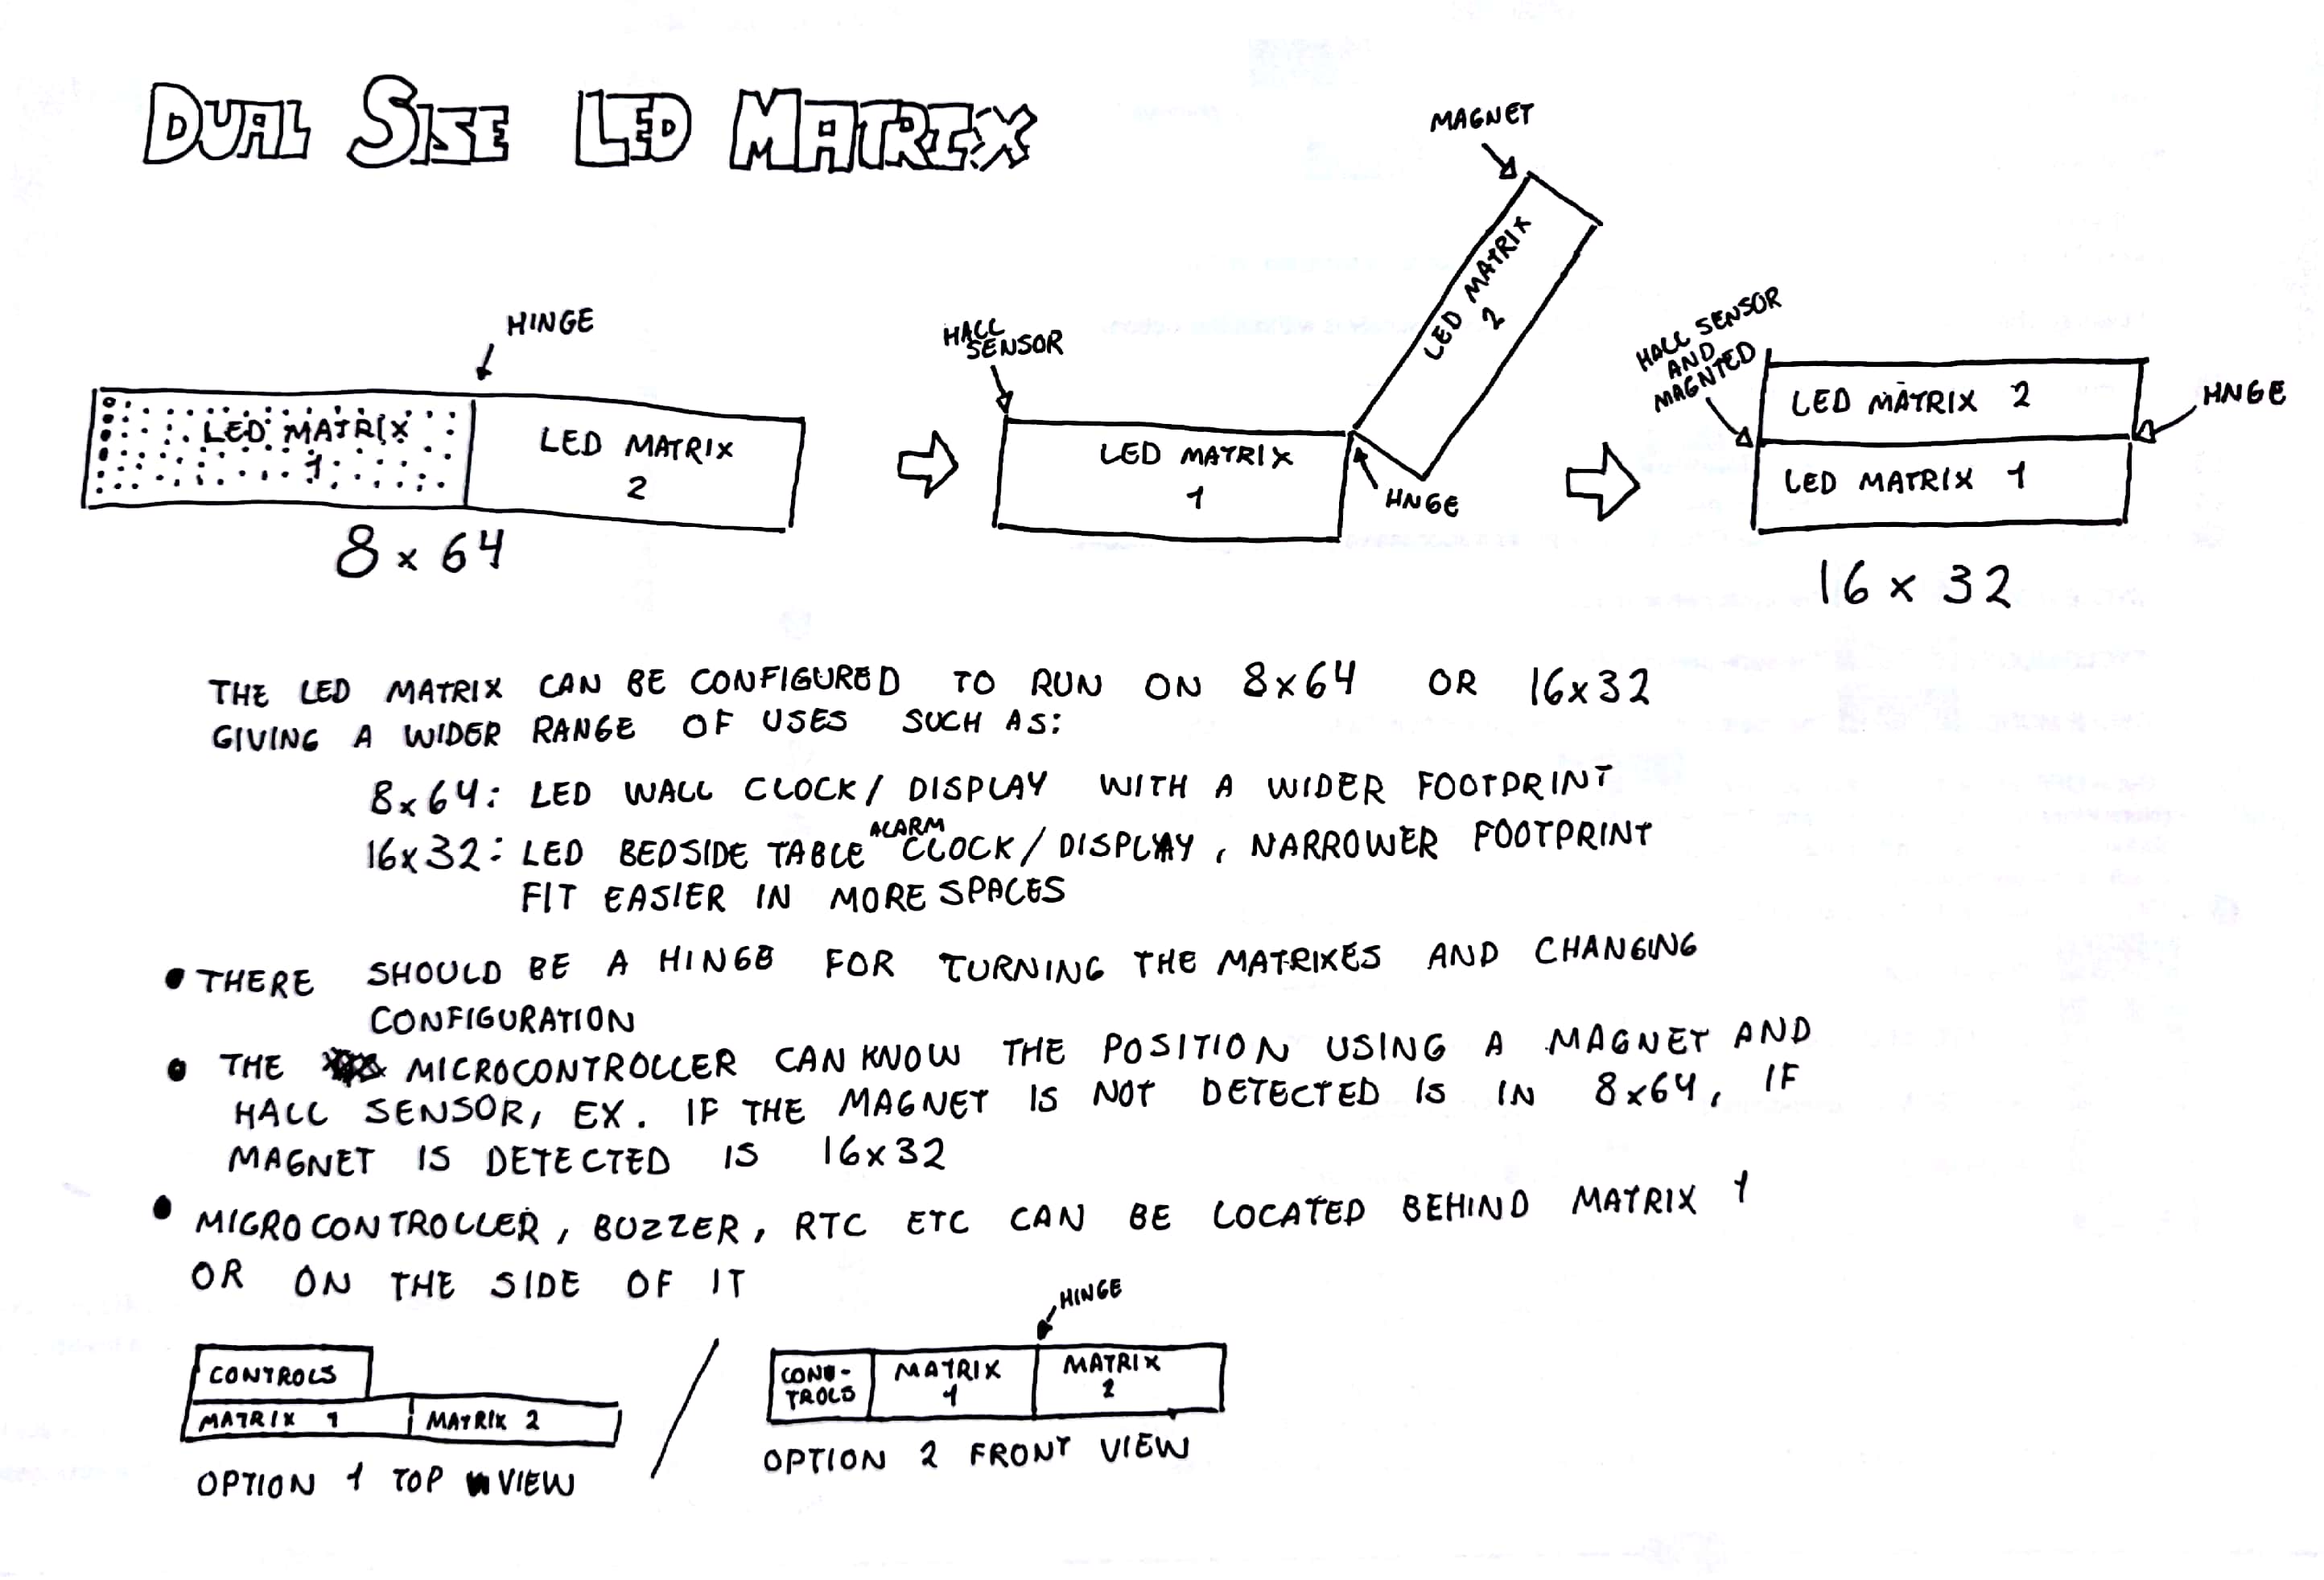 DUAL SISE LED MATRIX
MAGNET
HINGE
HALL
SENSOR
LED MATRIX
2
HALL SENSOR
AND
MAGNTED
LED MATRIX
1
LED MATRIX
2
LED MATRIX
1
HNGE
LED MATRIX 2
LED MATRIX 1
HNGE
8 x 64
16 x 32
THE LED MATRIX CAN BE CONFIGURED TO RUN ON 8x64 OR 16x32
GIVING A WIDER RANGE OF USES SUCH AS:
8x64: LED WALL CLOCK/ DISPLAY WITH A WIDER FOOTPRINT
16x32: LED BEDSIDE TABLE ALARM CLOCK/DISPLAY, NARROWER FOOTPRINT
FIT EASIER IN MORE SPACES
• THERE SHOULD BE A HINGE FOR TURNING THE MATRIXES AND CHANGING
CONFIGURATION
• THE MICROCONTROLLER CAN KNOW THE POSITION USING A MAGNET AND
HALL SENSOR, EX. IF THE MAGNET IS NOT DETECTED IS IN 8x64, IF
MAGNET IS DETECTED IS 16x32
• MICROCONTROLLER, BUZZER, RTC ETC CAN BE LOCATED BEHIND MATRIX 1
OR ON THE SIDE OF IT
HINGE
CONTROLS
MATRIX 1
MATRIX 2
OPTION 1 TOP VIEW
/
CON-
TROLS
MATRIX
1
MATRIX
2
OPTION 2 FRONT VIEW